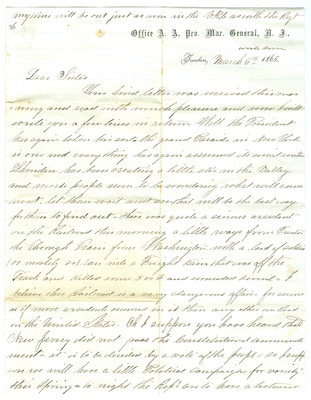 my time will be out just as soon in the as the Regt
Office A. A. Pro. Mar. General, N. J.,
Trenton, March 6th 1865.
Dear Sister
Your kind letter was received this mor
ning and read with much pleasure and now I will
write you a few lines in return Well the President
has again taken his seat the grand Parade in New York
is over and everything has again assumed its usual order
Sheridan has been creating a little stir in the Valley
and most people seem to be wondering what will come
next, let them wait and see that will be the best way
for them to find out. there was quite a serious accident
on the Railroad this morning a little ways from Trenton
the through Train from Washington with a load of soldiers
(or mostly so) ran into a freight train that was off the
Track and killed some 3 or 4 and wounded several I
believe this Railroad is a very dangerous affair for seems
as if more accidents occurred on it than any other road
in the United States. I suppose you have heard that
New Jersey did not pass the Constitutional ammend
ment it is to be decided by a vote of the people so
we will have a little Political Campaign for variety
this Spring to night the are to have a lecture